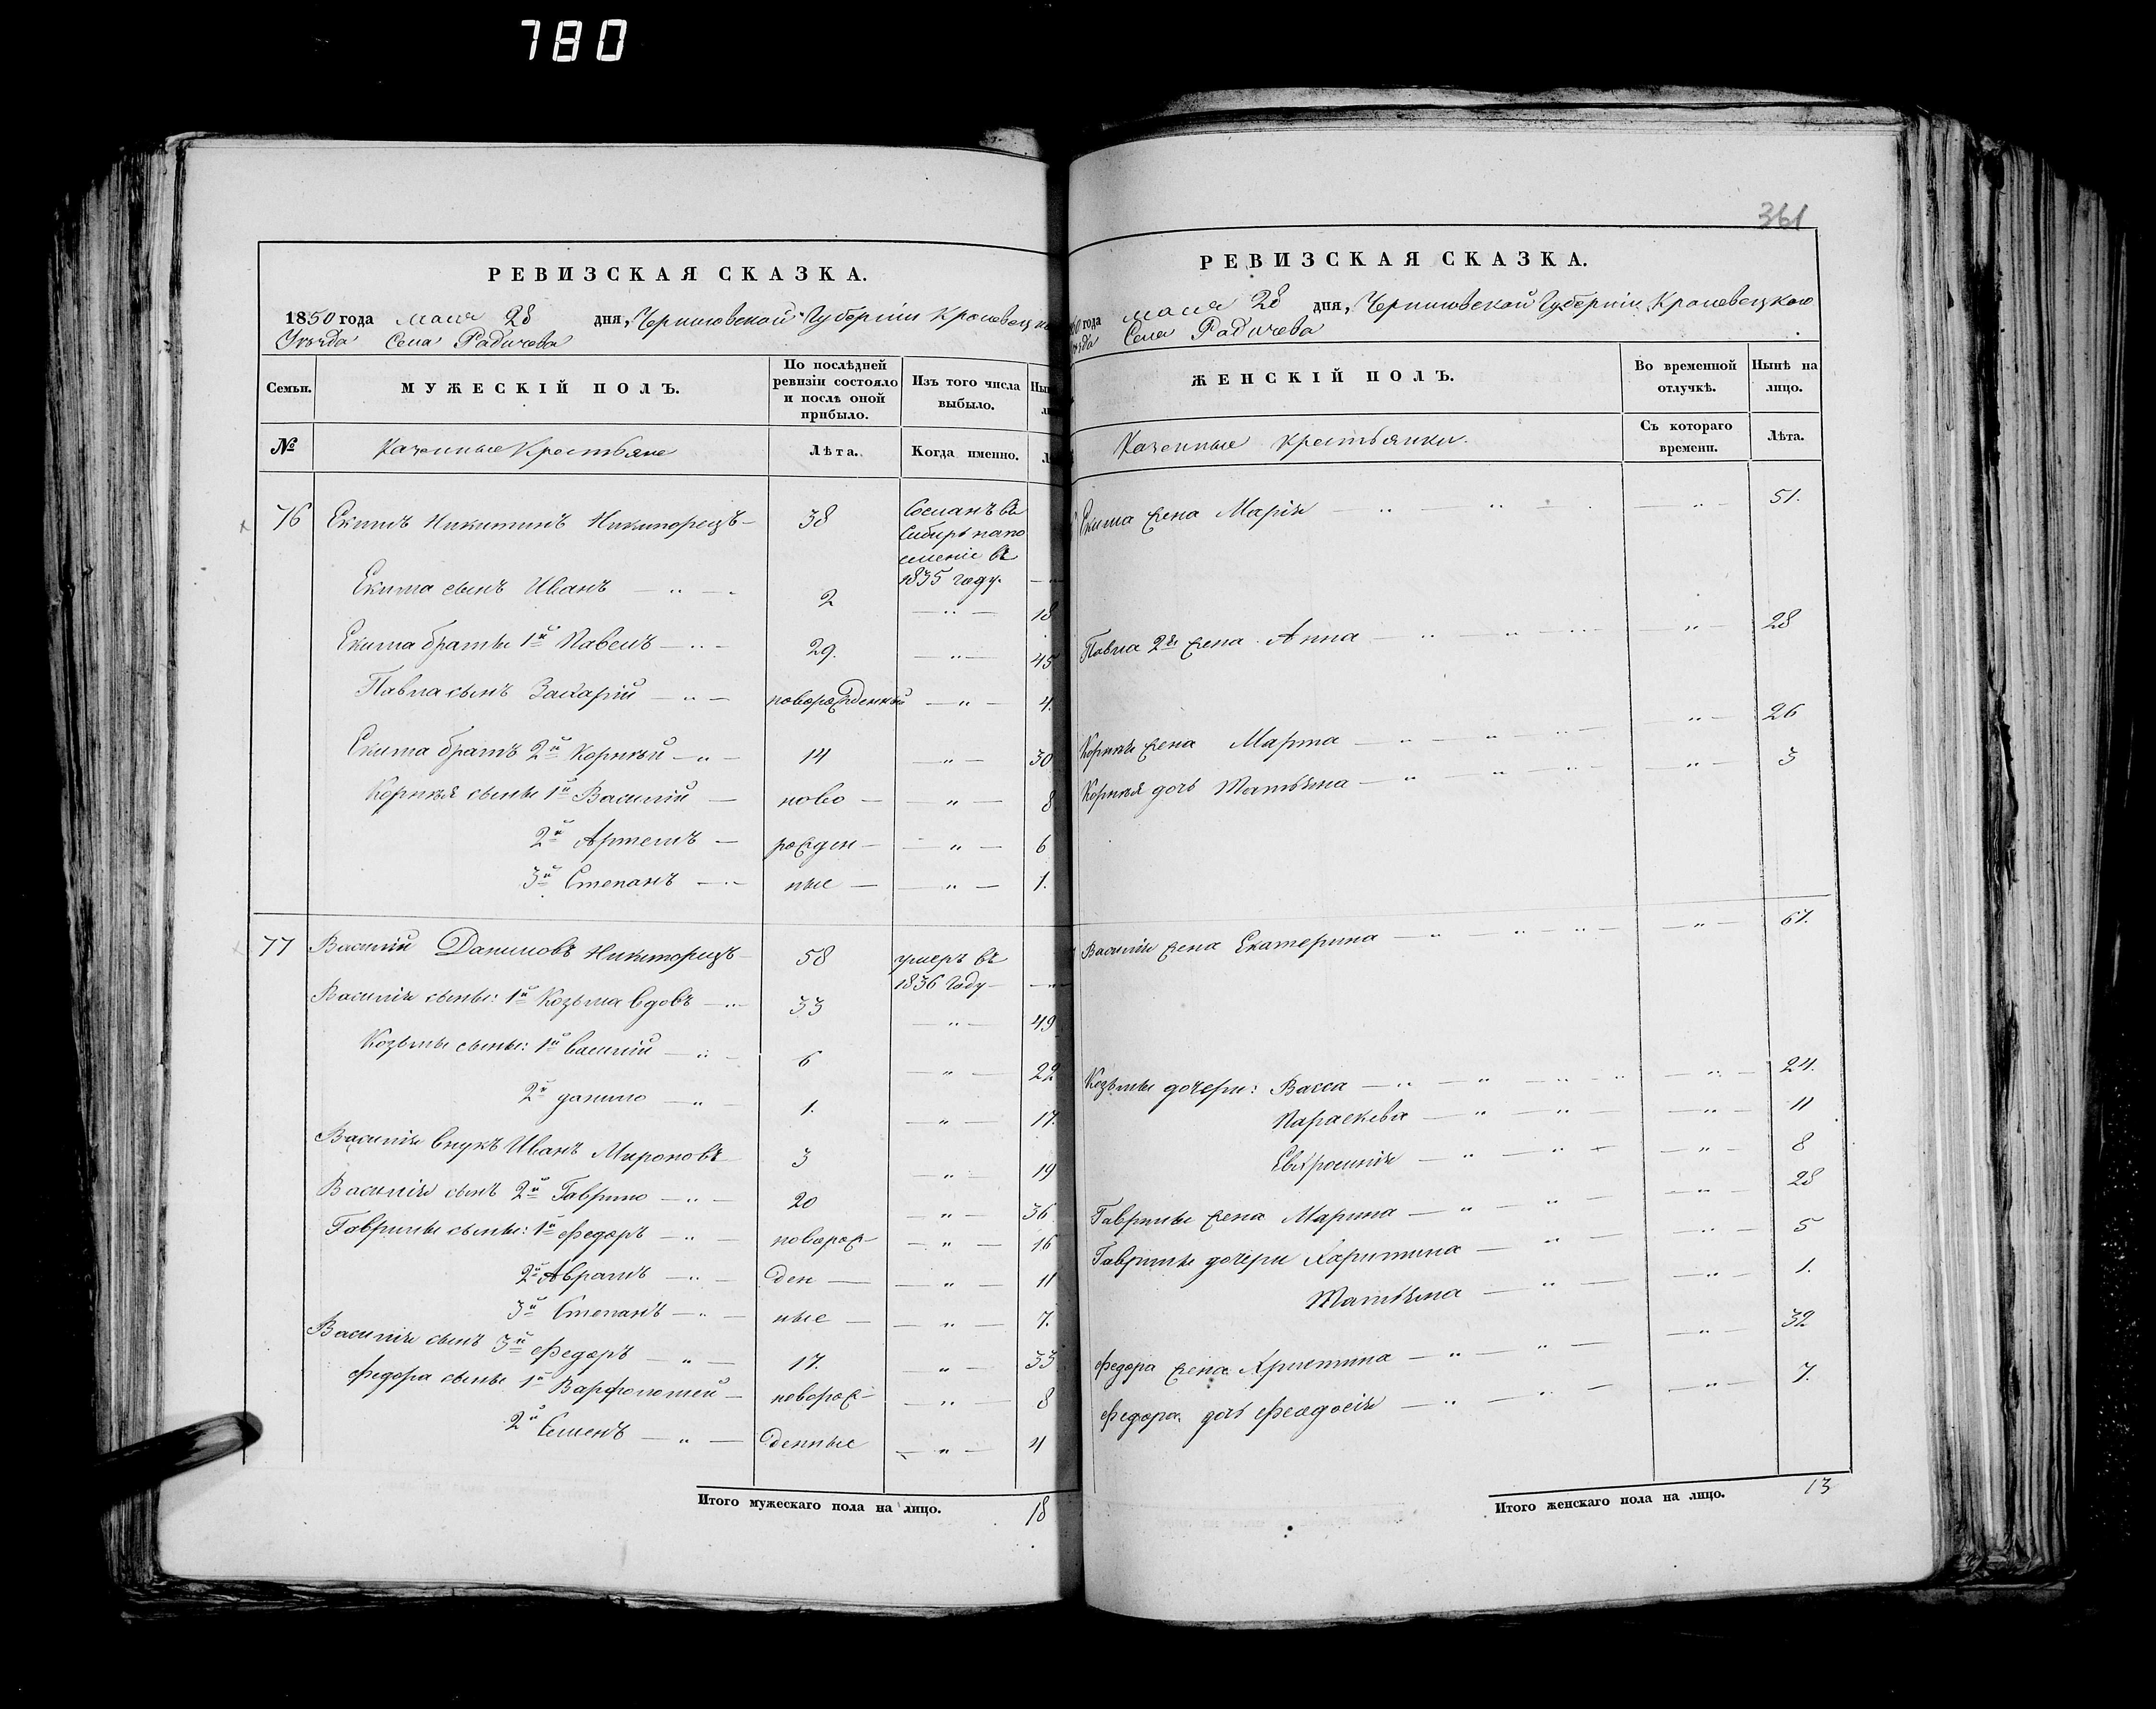 780
361
РЕВИЗСКАЯ СКАЗКА.
1850 года мая 28 дня, Черниговской Губерніи Кролевецка
Уѣзда Села Радичева
Семьи. МУЖЕСКІЙ ПОЛЪ. По послѣдней ревизіи состояло и послѣ оной прибыло. Изъ того числа выбыло.
№ Казенные Крестьяне Лѣта. Когда именно.
76 Екимъ Никитинъ Никипорецъ 38 Сосланъ въ
Сибирь на по
селеніе въ
1835 году.
Екима сынъ Иванъ 2 18
Екима братья 1й Павелъ 29. 45
Павла сынъ Захарій новорожденный 4.
Екима братъ 2й Корнѣй 14 30
Корнѣя сыны 1й Василій ново 8
2й Артемъ рожден 6
3й Степанъ ные 1.
77 Василій Даниловъ Никипорецъ 58 умеръ въ
1836 году
Василія сыны: 1й Козьма вдовъ 33 49
Козьмы сыны: 1й василій 6 22
2й данило 1. 17.
Василія внукъ Иванъ Мироновъ 3 19
Василія сынъ 2й Гаврило 20 36
Гаврилы сыны: 1й Федоръ новорож 16
2й Аврамъ ден 11
3й Степанъ ные 7.
Василія сынъ 3й Федоръ 17. 33
Федора сыны 1й Варфоломей новорож 8
2й Семенъ денные 4
Итого мужескаго пола на лицо. 18
РЕВИЗСКАЯ СКАЗКА.
года мая 28 дня, Черниговской Губерніи, Кролевецкаго
Села Радичева
ЖЕНСКІЙ ПОЛЪ. Во временной отлучкѣ. Нынѣ на лицо.
Казенные крестьянки. Съ котораго времени. Лѣта.
Екима жена Марія 51.
Павла 2я жена Анна 28
Корнѣя жена Марфа 26
Корнѣя дочь Татьяна 3
Василія жена Екатерина 67.
Козьмы дочери: Васса 24.
Параскева 11
Евфросинія 8
Гаврилы жена Марина 28
Гаврилы дочери Харитина 5
Татьяна 1.
Федора жена Христина 32
Федора дочь Феодосія 7.
Итого женскаго пола на лицо. 13